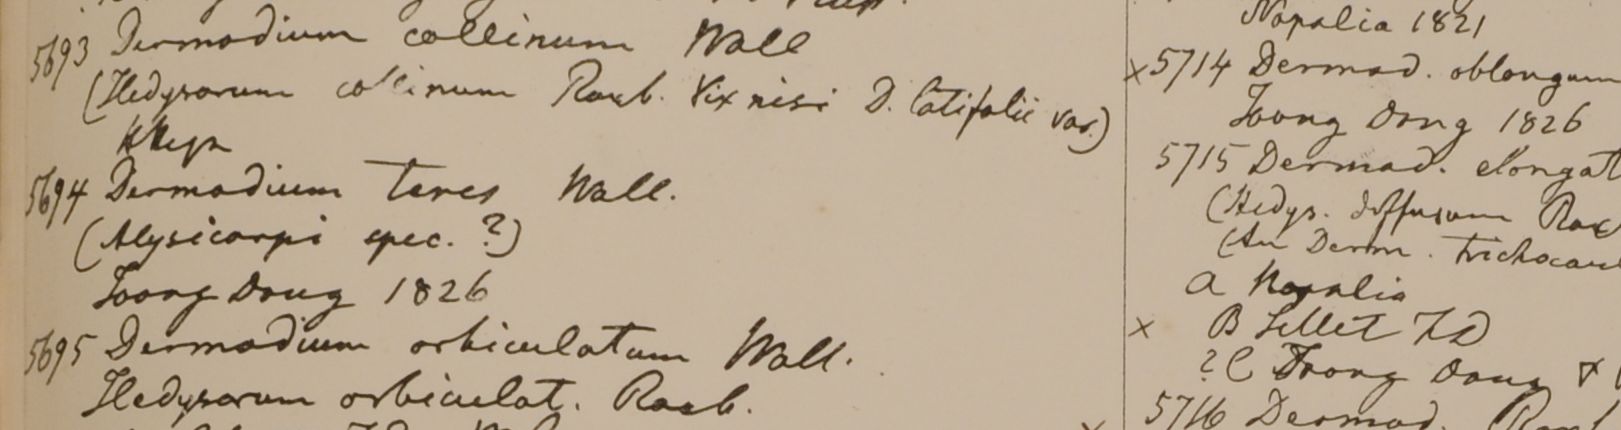 5693 Desmodium collinum Wall
(Hedysarum collinum Roxb. Vix nisi D. latifolii var.)
5694 Desmodium teres Wall.
(Alysicarpi spec. ?)
Toong Dong 1826
5695 Desmodium orbiculatum Wall.
Hedysarum orbiculat. Roxb.
Napalia 1821
x 5714 Desmod. oblongum
Toong Dong 1826
5715 Desmod. elongat
(Hedys. diffusum Rox
(An Desm. trichocau
a Napalia
x B Sillet FD
? C Toong Dong
5716 Desmod.